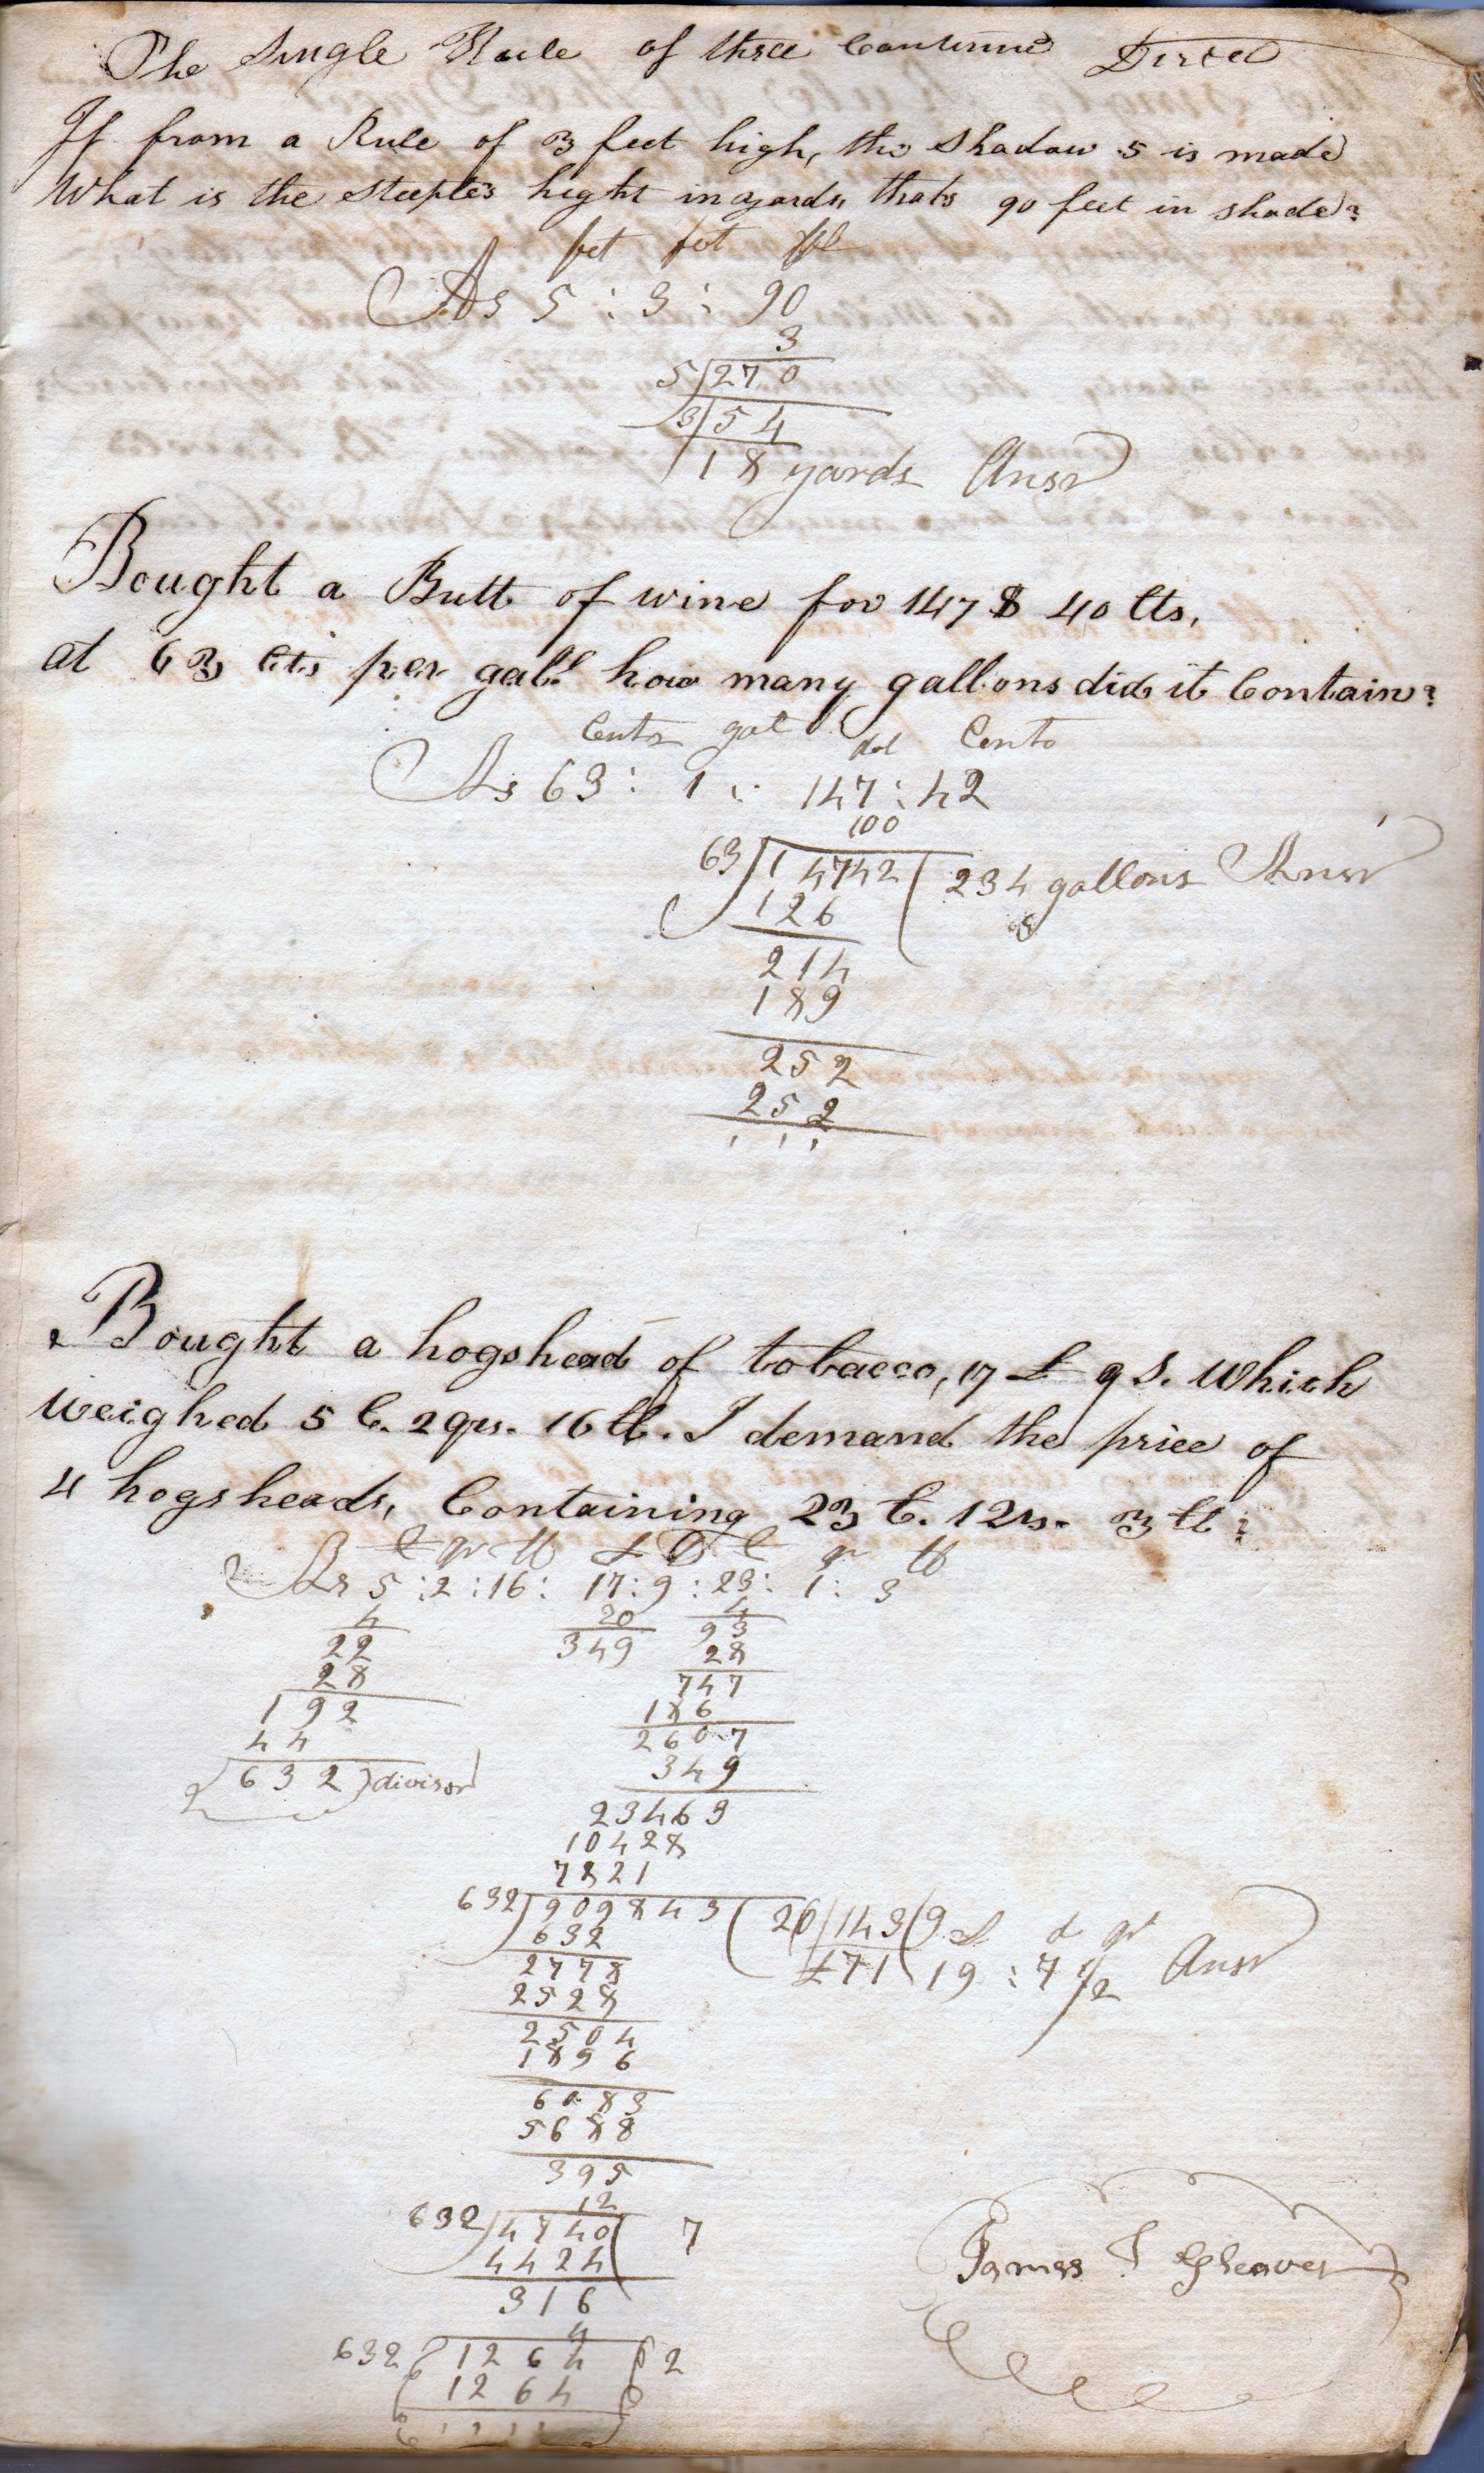 The Single Rule of three Continued Direct
If from a Rule of 3 feet high, the Shadow 5 is made
What is the steeples hight in yards, thats 90 feet in shade?
fet fet
As 5 : 3 : 90
3
5 270
3 54
18 yards Ansr
Bought a Butt of wine for 147 $ 40 Cts,
at 63 Cts per gall how many gallons did it Contain?
Cents gal dol Cents
As 63 : 1 :: 147 : 42
100
63 14742 ( 234 gallons Ansr
126
214
189
252
252
Bought a hogshead of tobacco, 17 £ 9 S. Which
Weighed 5 C. 2 qrs. 16 lb. I demand the price of
4 hogsheads, Containing 23 C. 1 2rs. 3 lb?
C qr lb £ S C qr lb
As 5 : 2 : 16 : 17 : 9 : 23 : 1 : 3
4 20 4
22 349 93
28 28
192 747
44 186
632 ) divisor 2607
349
23463
10428
7821
632 909843 ( 20 / 143 ( 9 d qr
632 £71 19 : 7 1/2 Ansr
2778
2528
2504
1896
6083
5688
395
12
632 4740 ( 7
4424
316
4
632 1264 2
1264
James S Gleaves